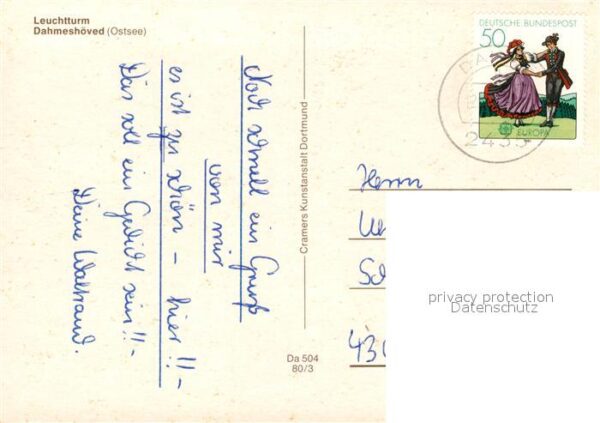 Leuchtturm
Dahmeshöved (Ostsee)
Noch schnell ein Gruß
von mir
es ist zu schön – hier!! –
Das soll ein Gedicht sein!! –
Deine Waltraud.
Cramers Kunstanstalt Dortmund
Da 504
80/3
DEUTSCHE BUNDESPOST
50
EUROPA
2435
Herrn
430
privacy protection
Datenschutz